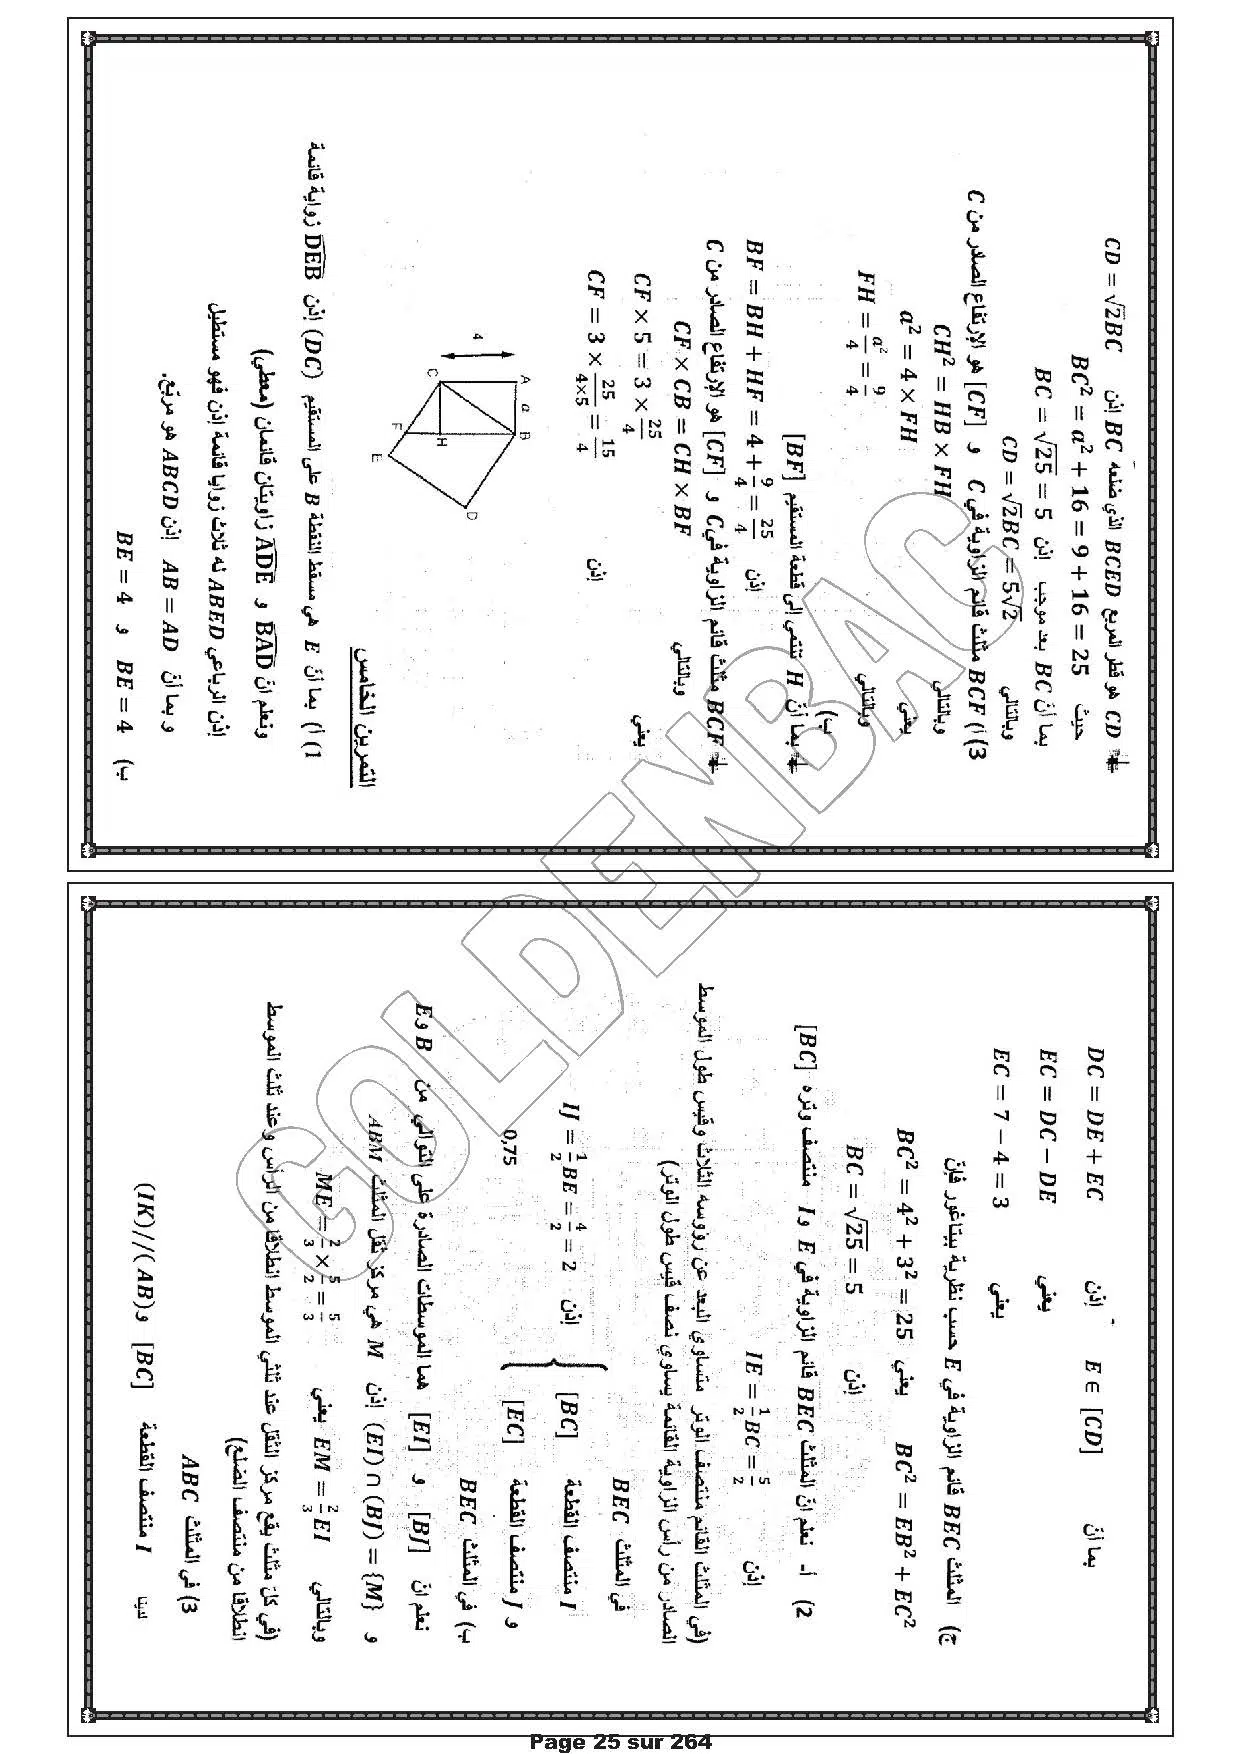 CD هو قطر المربع BCED الذي ضلعه BC إذن CD = √2BC
حيث BC² = a² + 16 = 9 + 16 = 25
بما أنّ BC بعد موجب إذن BC = √25 = 5
وبالتالي CD = √2BC = 5√2
3) أ) BCF مثلث قائم الزاوية في C و [CF] هو الإرتفاع الصادر من C
وبالتالي CH² = HB × FH
يعني a² = 4 × FH
وبالتالي FH = a²/4 = 9/4
ب)
بما أنّ H تنتمي إلى قطعة المستقيم [BF]
إذن BF = BH + HF = 4 + 9/4 = 25/4
BCF مثلث قائم الزاوية في C و [CF] هو الإرتفاع الصادر من C
وبالتالي CF × CB = CH × BF
يعني CF × 5 = 3 × 25/4
إذن CF = 3 × 25/4×5 = 15/4
A a B
4
C H
F E D
التمرين الخامس
1) أ) بما أنّ E هي مسقط النقطة B على المستقيم (DC) إذن DEB زواية قائمة
ونعلم انّ BAD و ADE زاويتان قائمتان (معطى)
إذن الرباعي ABED له ثلاث زوايا قائمة إذن فهو مستطيل
و بما أنّ AB = AD إذن ABCD هو مربّع.
ب) BE = 4 و BE = 4
بما أنّ E ∈ [CD] إذن DC = DE + EC
يعني EC = DC − DE
يعني EC = 7 − 4 = 3
ج) المثلث BEC قائم الزاوية في E حسب نظرية بيتاغور فإنّ
BC² = EB² + EC² يعني BC² = 4² + 3² = 25
إذن BC = √25 = 5
2) أ- نعلم انّ المثلث BEC قائم الزاوية في E و I منتصف وتره [BC]
إذن IE = 1/2 BC = 5/2
(في المثلث القائم منتصف الوتر متساوي البعد عن رؤوسه الثلاث وقيس طول الموسط
الصادر من رأس الزاوية القائمة يساوي نصف قيس طول الوتر)
في المثلث BEC
I منتصف القطعة [BC] إذن IJ = 1/2 BE = 4/2 = 2
و J منتصف القطعة [EC] 0,75
ب) في المثلث BEC
نعلم انّ [BJ] و [EI] هما الموسطات الصادرة على التوالي من B و E
و (EI) ∩ (BJ) = {M} إذن M هي مركز ثقل المثلث ABM
وبالتالي EM = 2/3 EI يعني ME = 2/3 × 5/2 = 5/3
(في كلّ مثلث يقع مركز الثقل عند ثلثي الموسط انطلاقا من الرأس وعند ثلث الموسط
انطلاقا من منتصف الضلع)
3) في المثلث ABC
لدينا I منتصف القطعة [BC] و (IK)//(AB)
GOLDENBAC
Page 25 sur 264